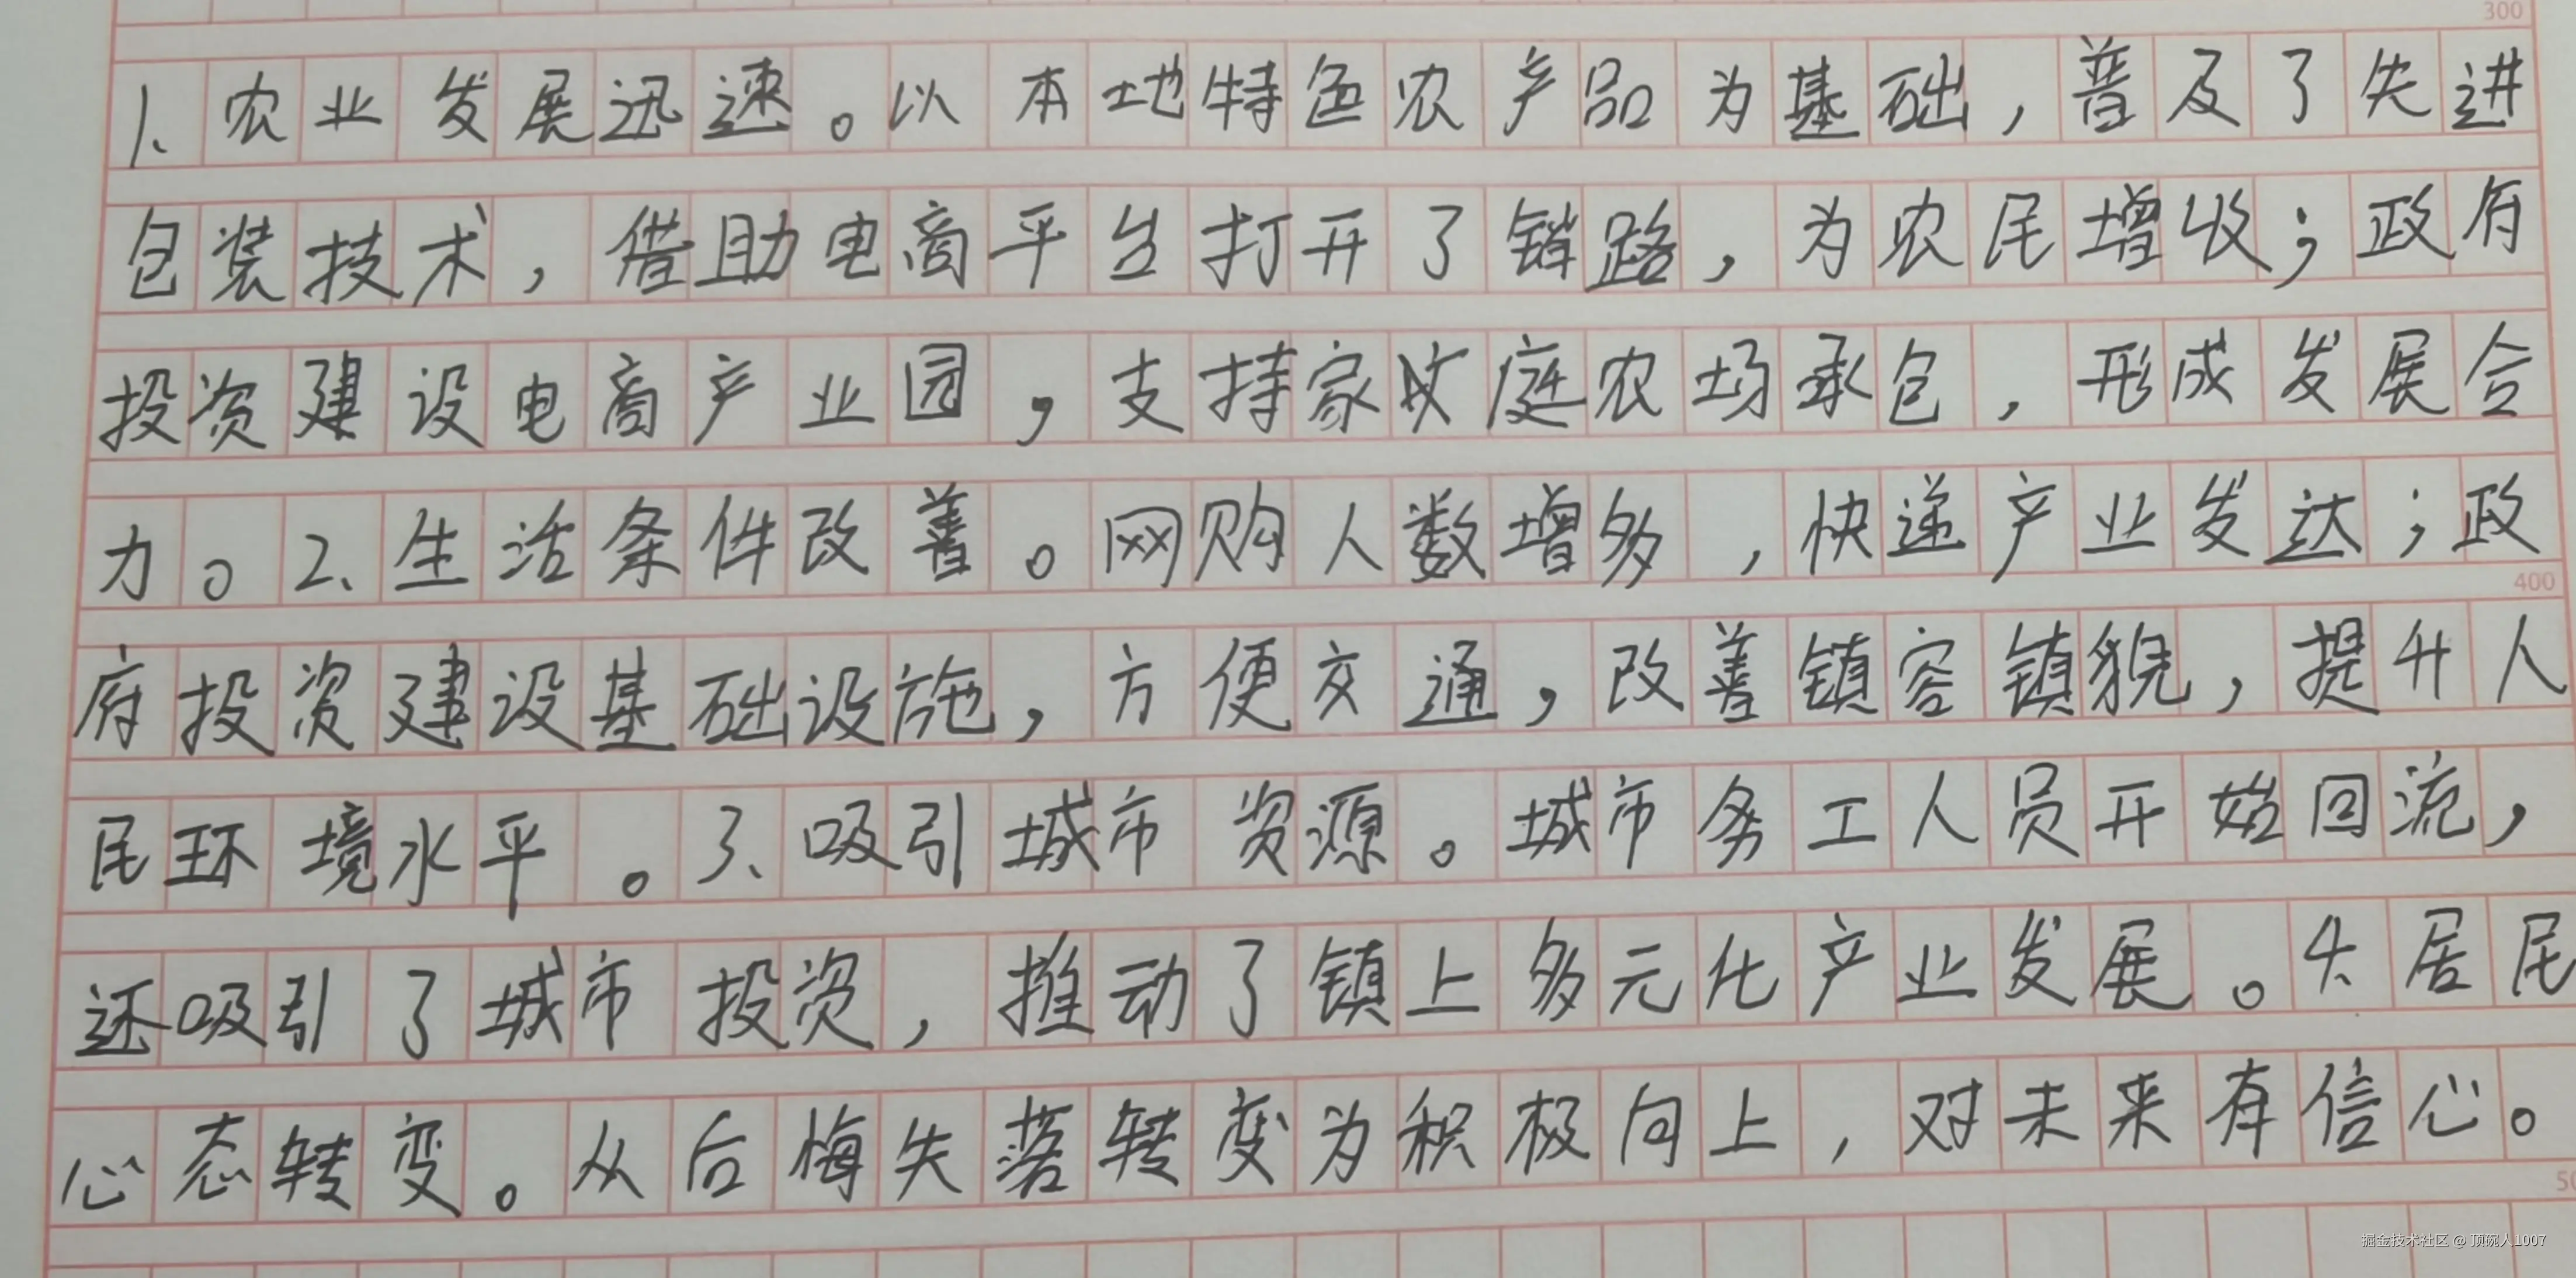 300
1、农业发展迅速。以本地特色农产品为基础，普及了先进
包装技术，借助电商平台打开了销路，为农民增收；政府
投资建设电商产业园，支持家庭农场承包，形成发展合
力。2、生活条件改善。网购人数增多，快递产业发达；政
400
府投资建设基础设施，方便交通，改善镇容镇貌，提升人
民环境水平。3、吸引城市资源。城市务工人员开始回流，
还吸引了城市投资，推动了镇上多元化产业发展。4、居民
心态转变。从后悔失落转变为积极向上，对未来有信心。
掘金技术社区 @ 顶碗人1007